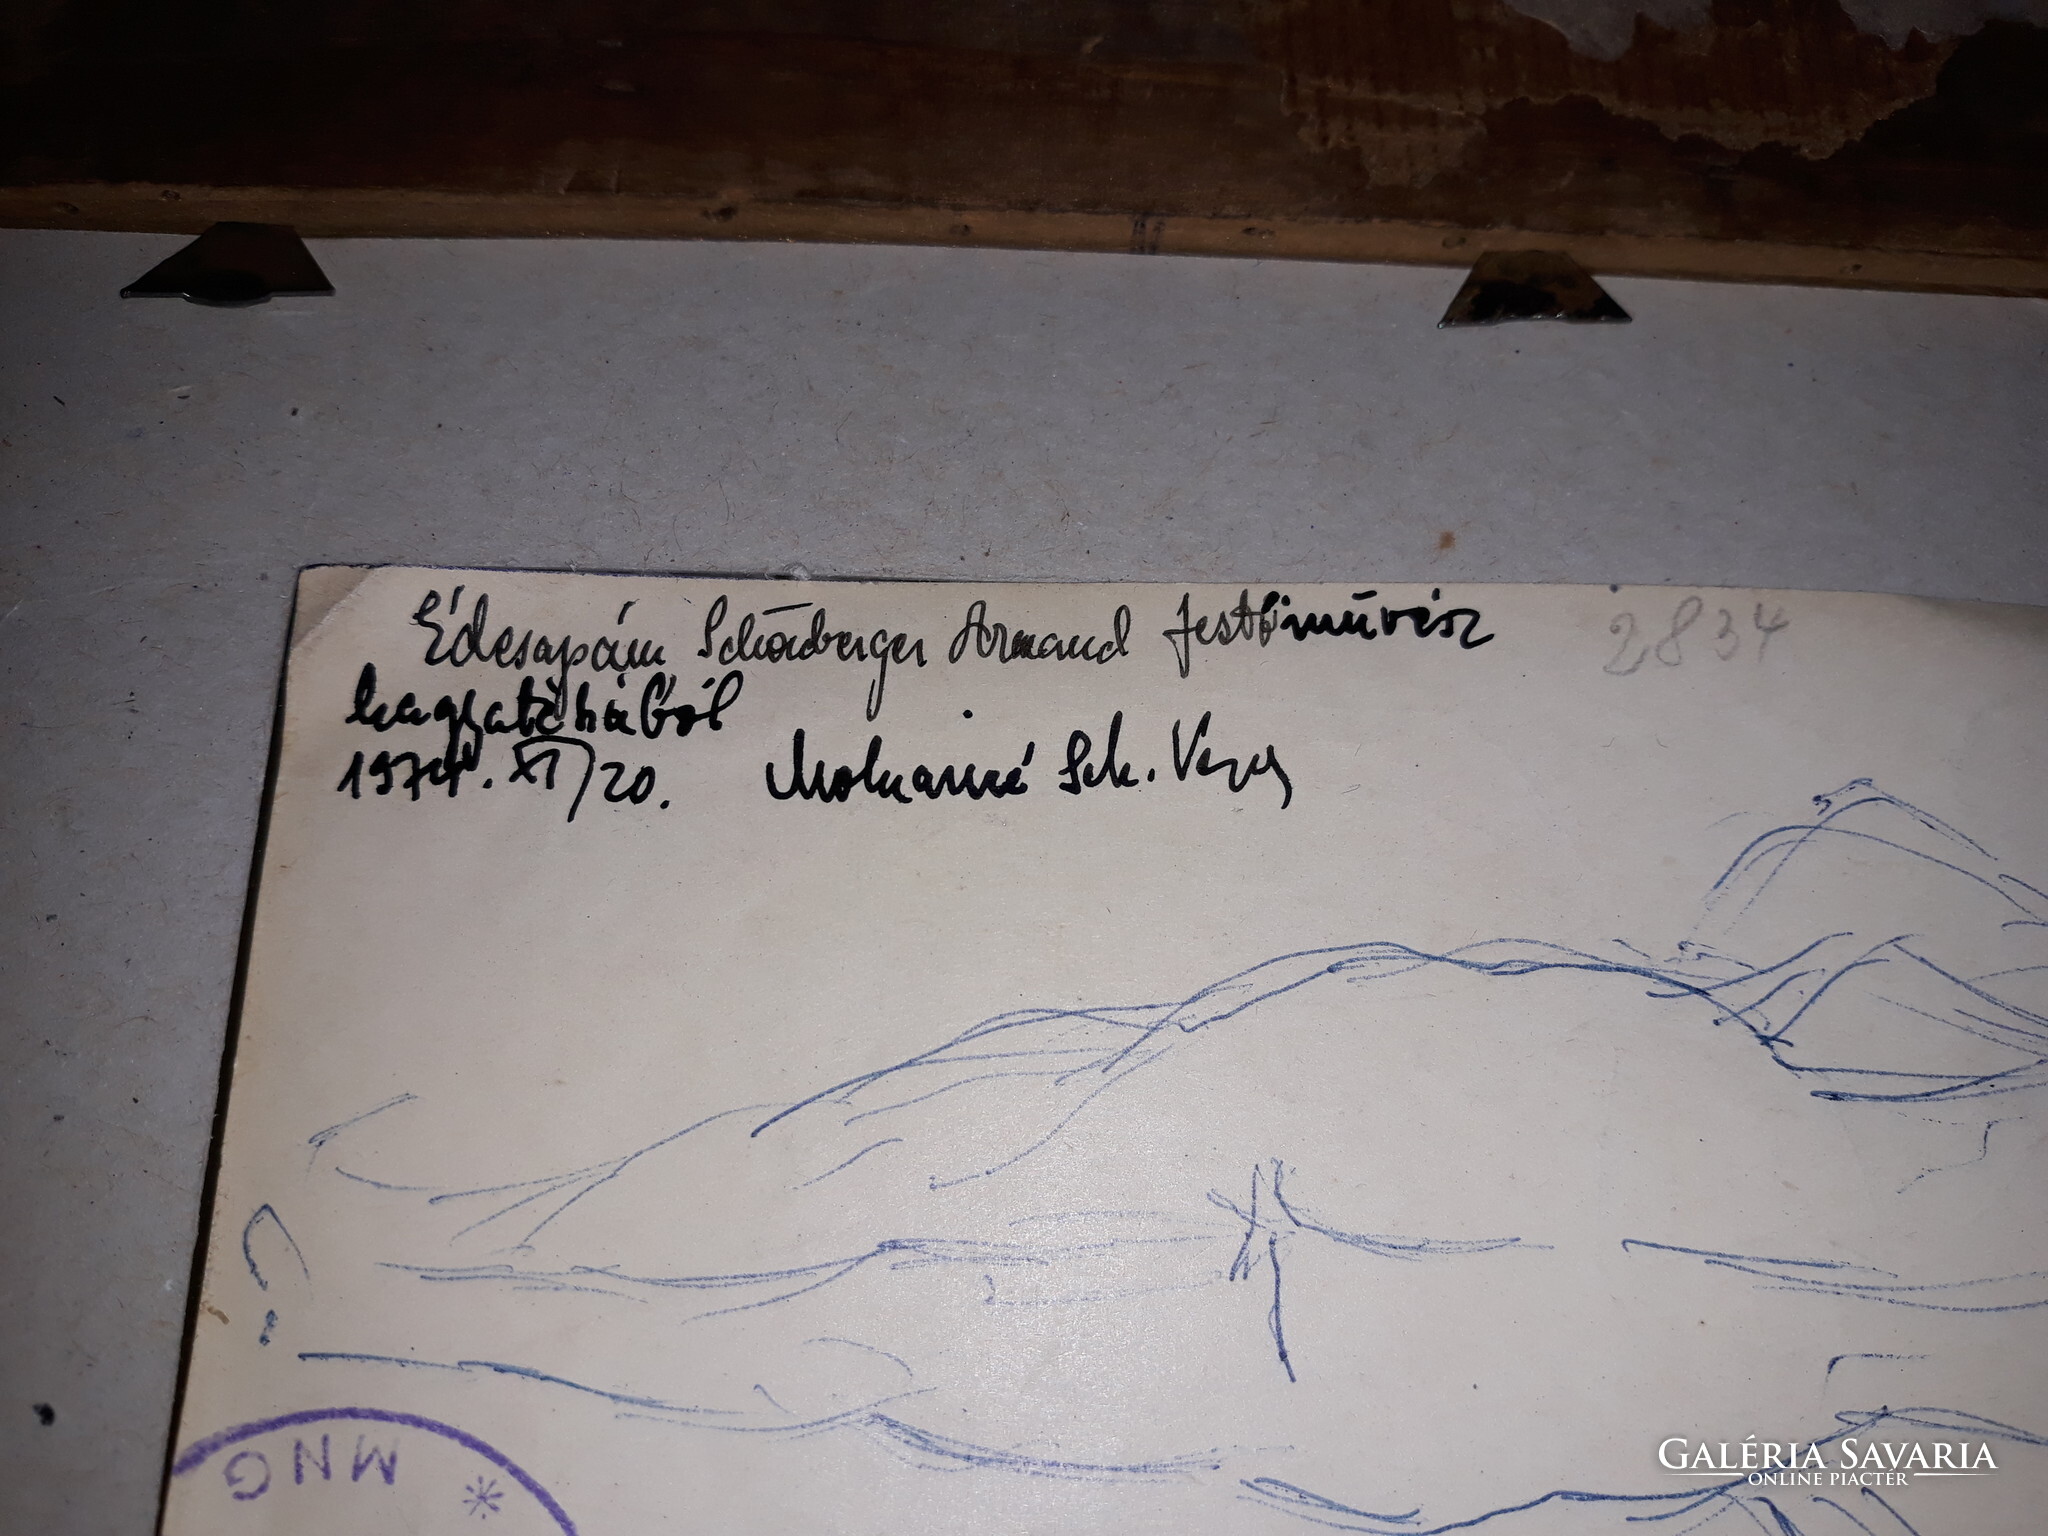 Édesapám Schönberger Armand festőművész 2834
hagyatékából
1974. XI/20. Molnárné Sch. Vera
MNG *
GALÉRIA SAVARIA
ONLINE PIACTÉR